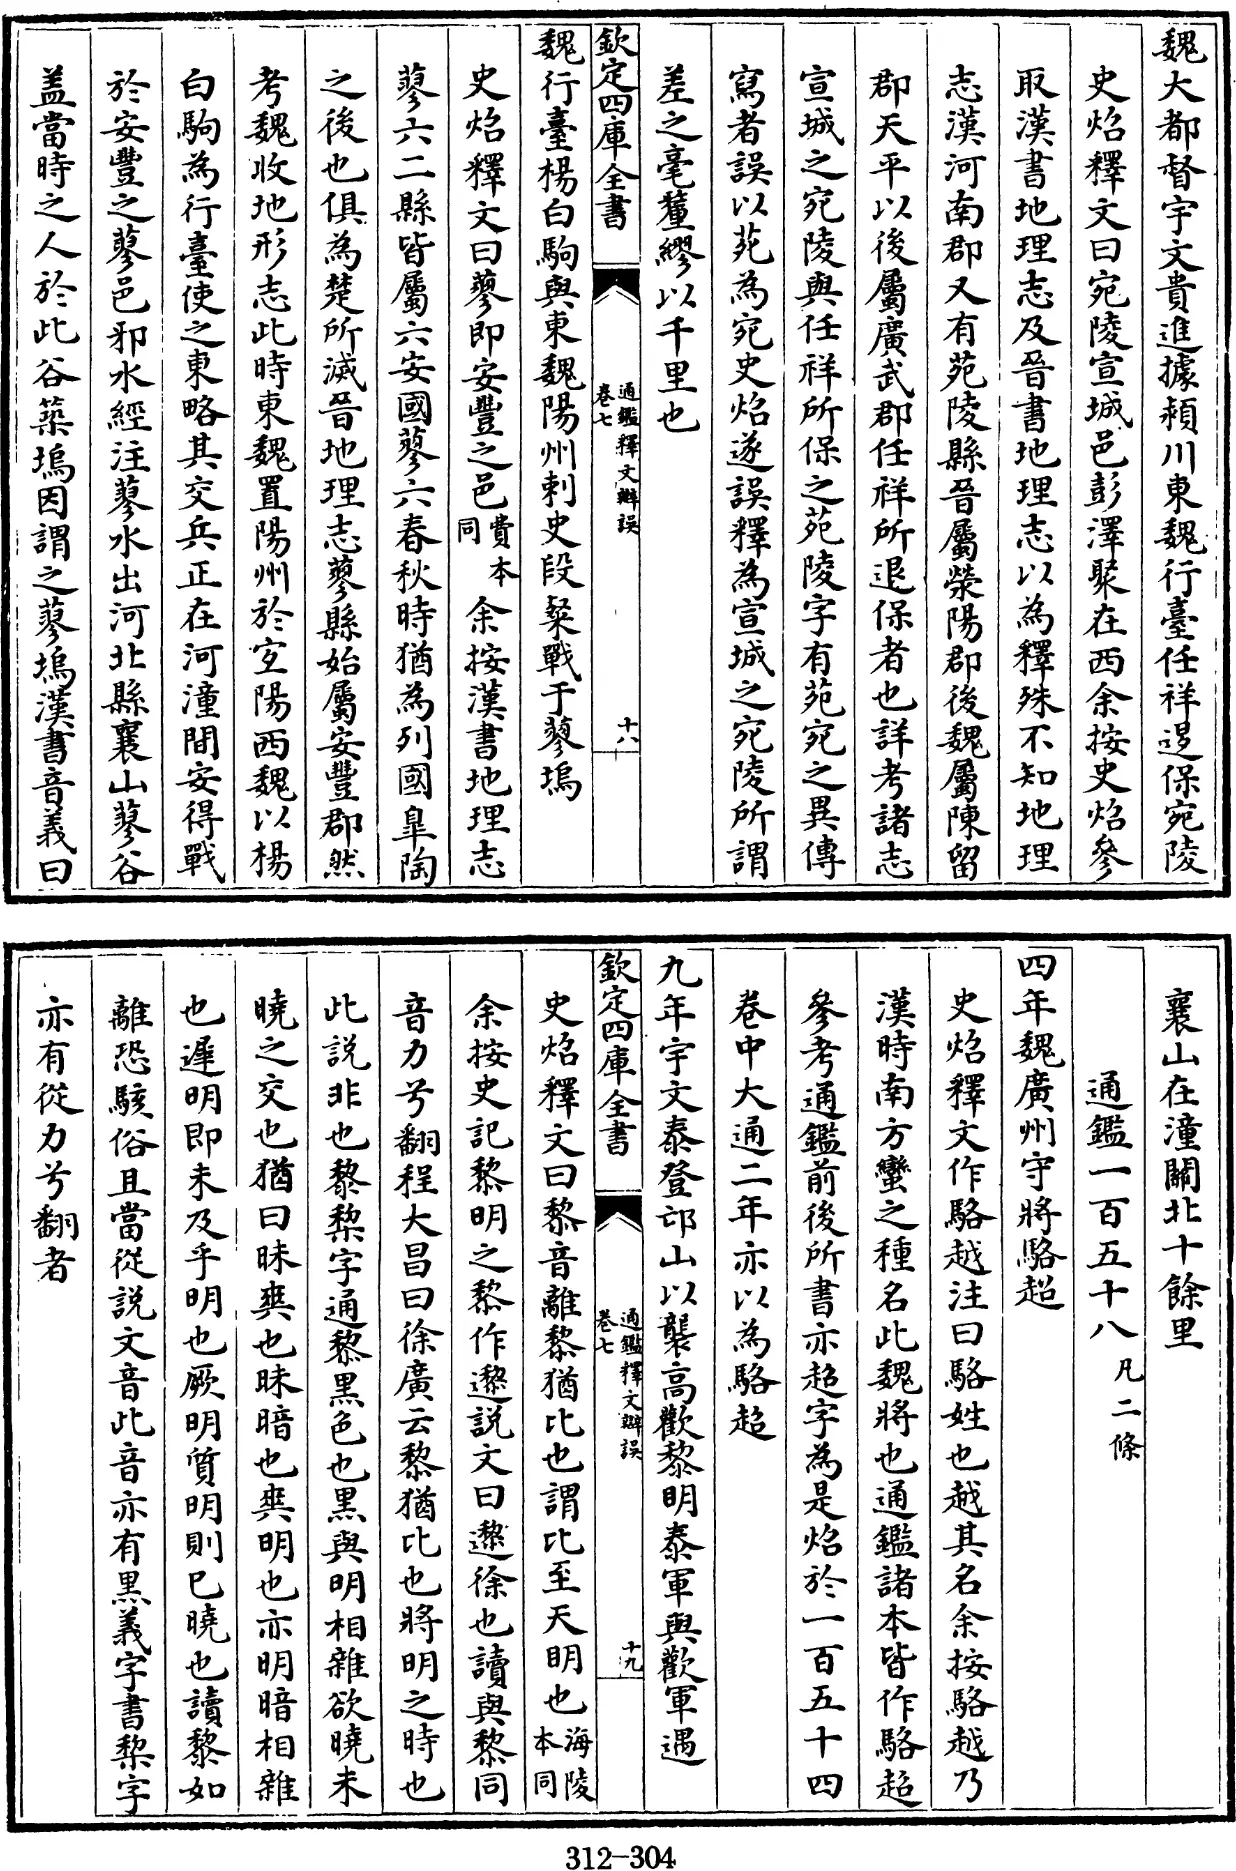 魏大都督宇文貴進據潁川東魏行臺任祥退保宛陵
史炤釋文曰宛陵宣城邑彭澤聚在西余按史炤參
取漢書地理志及晉書地理志以為釋殊不知地理
志漢河南郡又有苑陵縣晉屬滎陽郡後魏屬陳留
郡天平以後屬廣武郡任祥所退保者也詳考諸志
宣城之宛陵與任祥所保之苑陵字有苑宛之異傳
寫者誤以苑為宛史炤遂誤釋為宣城之宛陵所謂
差之毫釐繆以千里也
欽定四庫全書
通鑑釋文辯誤
卷七
十八
魏行臺楊白駒與東魏陽州刺史段粲戰于蓼塢
史炤釋文曰蓼即安豐之邑費本同余按漢書地理志
蓼六二縣皆屬六安國蓼六春秋時猶為列國皐陶
之後也俱為楚所滅晉地理志蓼縣始屬安豐郡然
考魏收地形志此時東魏置陽州於宜陽西魏以楊
白駒為行臺使之東略其交兵正在河潼間安得戰
於安豐之蓼邑邪水經注蓼水出河北縣襄山蓼谷
盖當時之人於此谷築塢因謂之蓼塢漢書音義曰
襄山在潼關北十餘里
通鑑一百五十八凡二條
四年魏廣州守將駱超
史炤釋文作駱越注曰駱姓也越其名余按駱越乃
漢時南方蠻之種名此魏將也通鑑諸本皆作駱超
參考通鑑前後所書亦超字為是炤於一百五十四
卷中大通二年亦以為駱超
九年宇文泰登邙山以襲高歡黎明泰軍與歡軍遇
欽定四庫全書
通鑑釋文辯誤
卷七
十九
史炤釋文曰黎音離黎猶比也謂比至天明也海陵本同
余按史記黎明之黎作邌說文曰邌徐也讀與黎同
音力兮翻程大昌曰徐廣云黎猶比也將明之時也
此說非也黎犂字通黎黑色也黑與明相雜欲曉未
曉之交也猶曰昧爽也昧暗也爽明也亦明暗相雜
也遲明即未及乎明也厥明質明則已曉也讀黎如
離恐駭俗且當從說文音此音亦有黑義字書犂字
亦有從力兮翻者
312-304